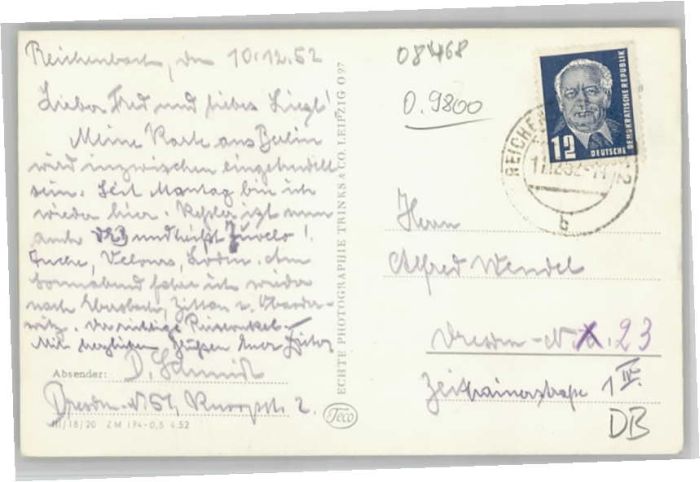 Reichenbach, den 10.12.52
Lieber Fred und liebes Liesgl!
Meine Karte aus Berlin
wird inzwischen eingetrudelt
sein. Seit Montag bin ich
wieder hier. Kepler ist nun
auch und heißt
Tuche, Velours, Loden. Am
Sonnabend fahre ich wieder
nach Ebersbach, Zittau u. Oberoder-
witz. Der richtige Reiseonkel.
Mit herzlichen Grüßen Euer
Absender: D. Schmidt
Dresden-N.51, 2.
III/18/20 ZM 194-0,5 4.52
ECHTE PHOTOGRAPHIE TRINKS & CO. LEIPZIG O 97
Teco
081468
0.9800
12
DEUTSCHE DEMOKRATISCHE REPUBLIK
REICHENB
12.52-11
b
Herrn
Alfred Wendel
Dresden-N. 23
Zeithainerstraße 1 III.
DB